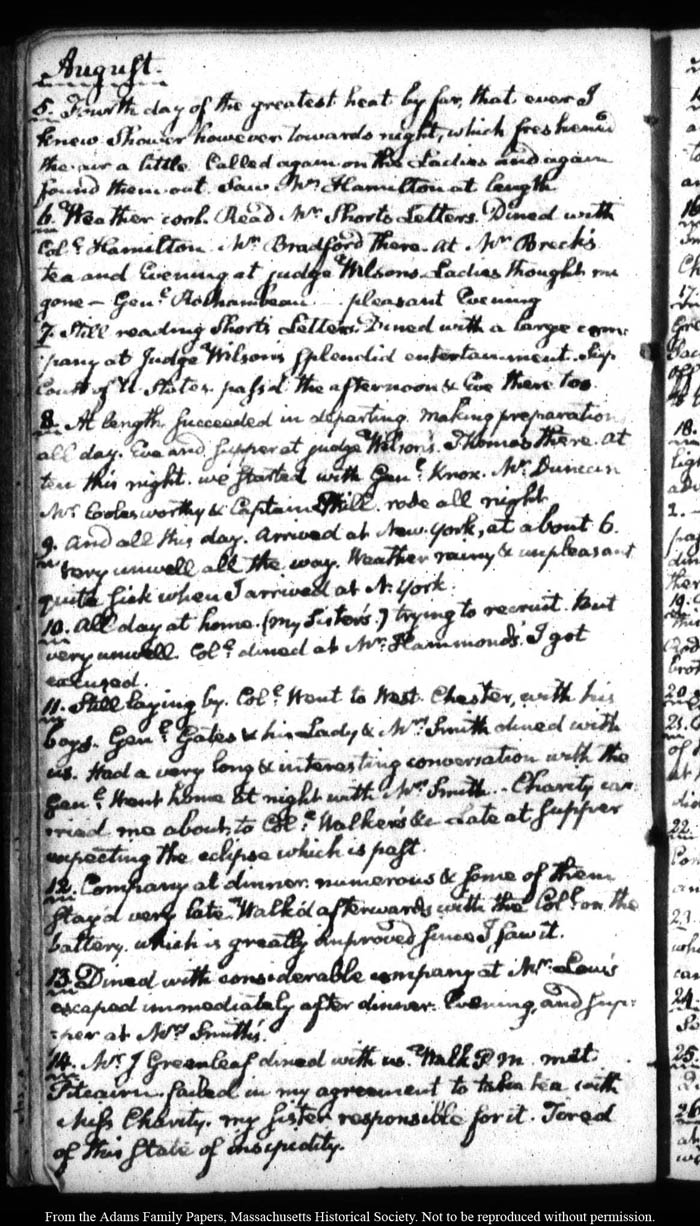 August.
5. Fourth day of the greatest heat by far, that ever I
knew. Shower however towards night, which freshened
the air a little. Called again on the Ladies and again
found them out. Saw Mr. Hamilton at length
6. Weather cool. Read Mr. Shorts Letters. Dined with
Coll. Hamilton. Mr. Bradford there. At Mr. Breck's
tea and Evening at judge Wilsons. Ladies thought me
gone — Genl. Rochambeau pleasant Evening
7. Still reading Short's Letters. Dined with a large com-
pany at Judge Wilson's splendid entertainment. Sup
Court of U. States. pass'd the afternoon & Eve there too.
8. At length succeeded in departing. Making preparation
all day. Eve and supper at judge Wilson's. Thomas there. At
ten this night. we started with Genl. Knox. Mr. Duncan
Mr. Colesworthy & Captain Mill. rode all night
9. And all this day. Arrived at New-York, at about 6.
Very unwell all the way. Weather rainy & unpleasant
quite sick when I arrived at N. York.
10. All day at home. (my Sister's.) trying to recruit. But
very unwell. Coll. dined at Mr. Hammond's. I got
excused.
11. Still laying by. Coll. Went to West-Chester, with his
boys. Genl. Gates & his Lady, & Mrs. Smith dined with
us. Had a very long & interesting conversation with the
Genl. Went home at night with Mrs. Smith. Charity car-
ried me about, to Coll. Walker's &c Late at supper
expecting the eclipse which is past.
12. Company at dinner. numerous & some of them
stay'd very late. Walk'd afterwards with the Coll. on the
battery. which is greatly improved since I saw it.
13. Dined with considerable company at Mr. Lewis
escaped immediately after dinner. Evening, and sup-
per at Mrs. Smith's.
14. Mr. J Greenleaf dined with us. Walk P.M. met
Pitcairn. failed in my agreement to take tea with
Miss Charity. my sister responsible for it. Tored
of this state of insipidity.
From the Adams Family Papers, Massachusetts Historical Society. Not to be reproduced without permission.